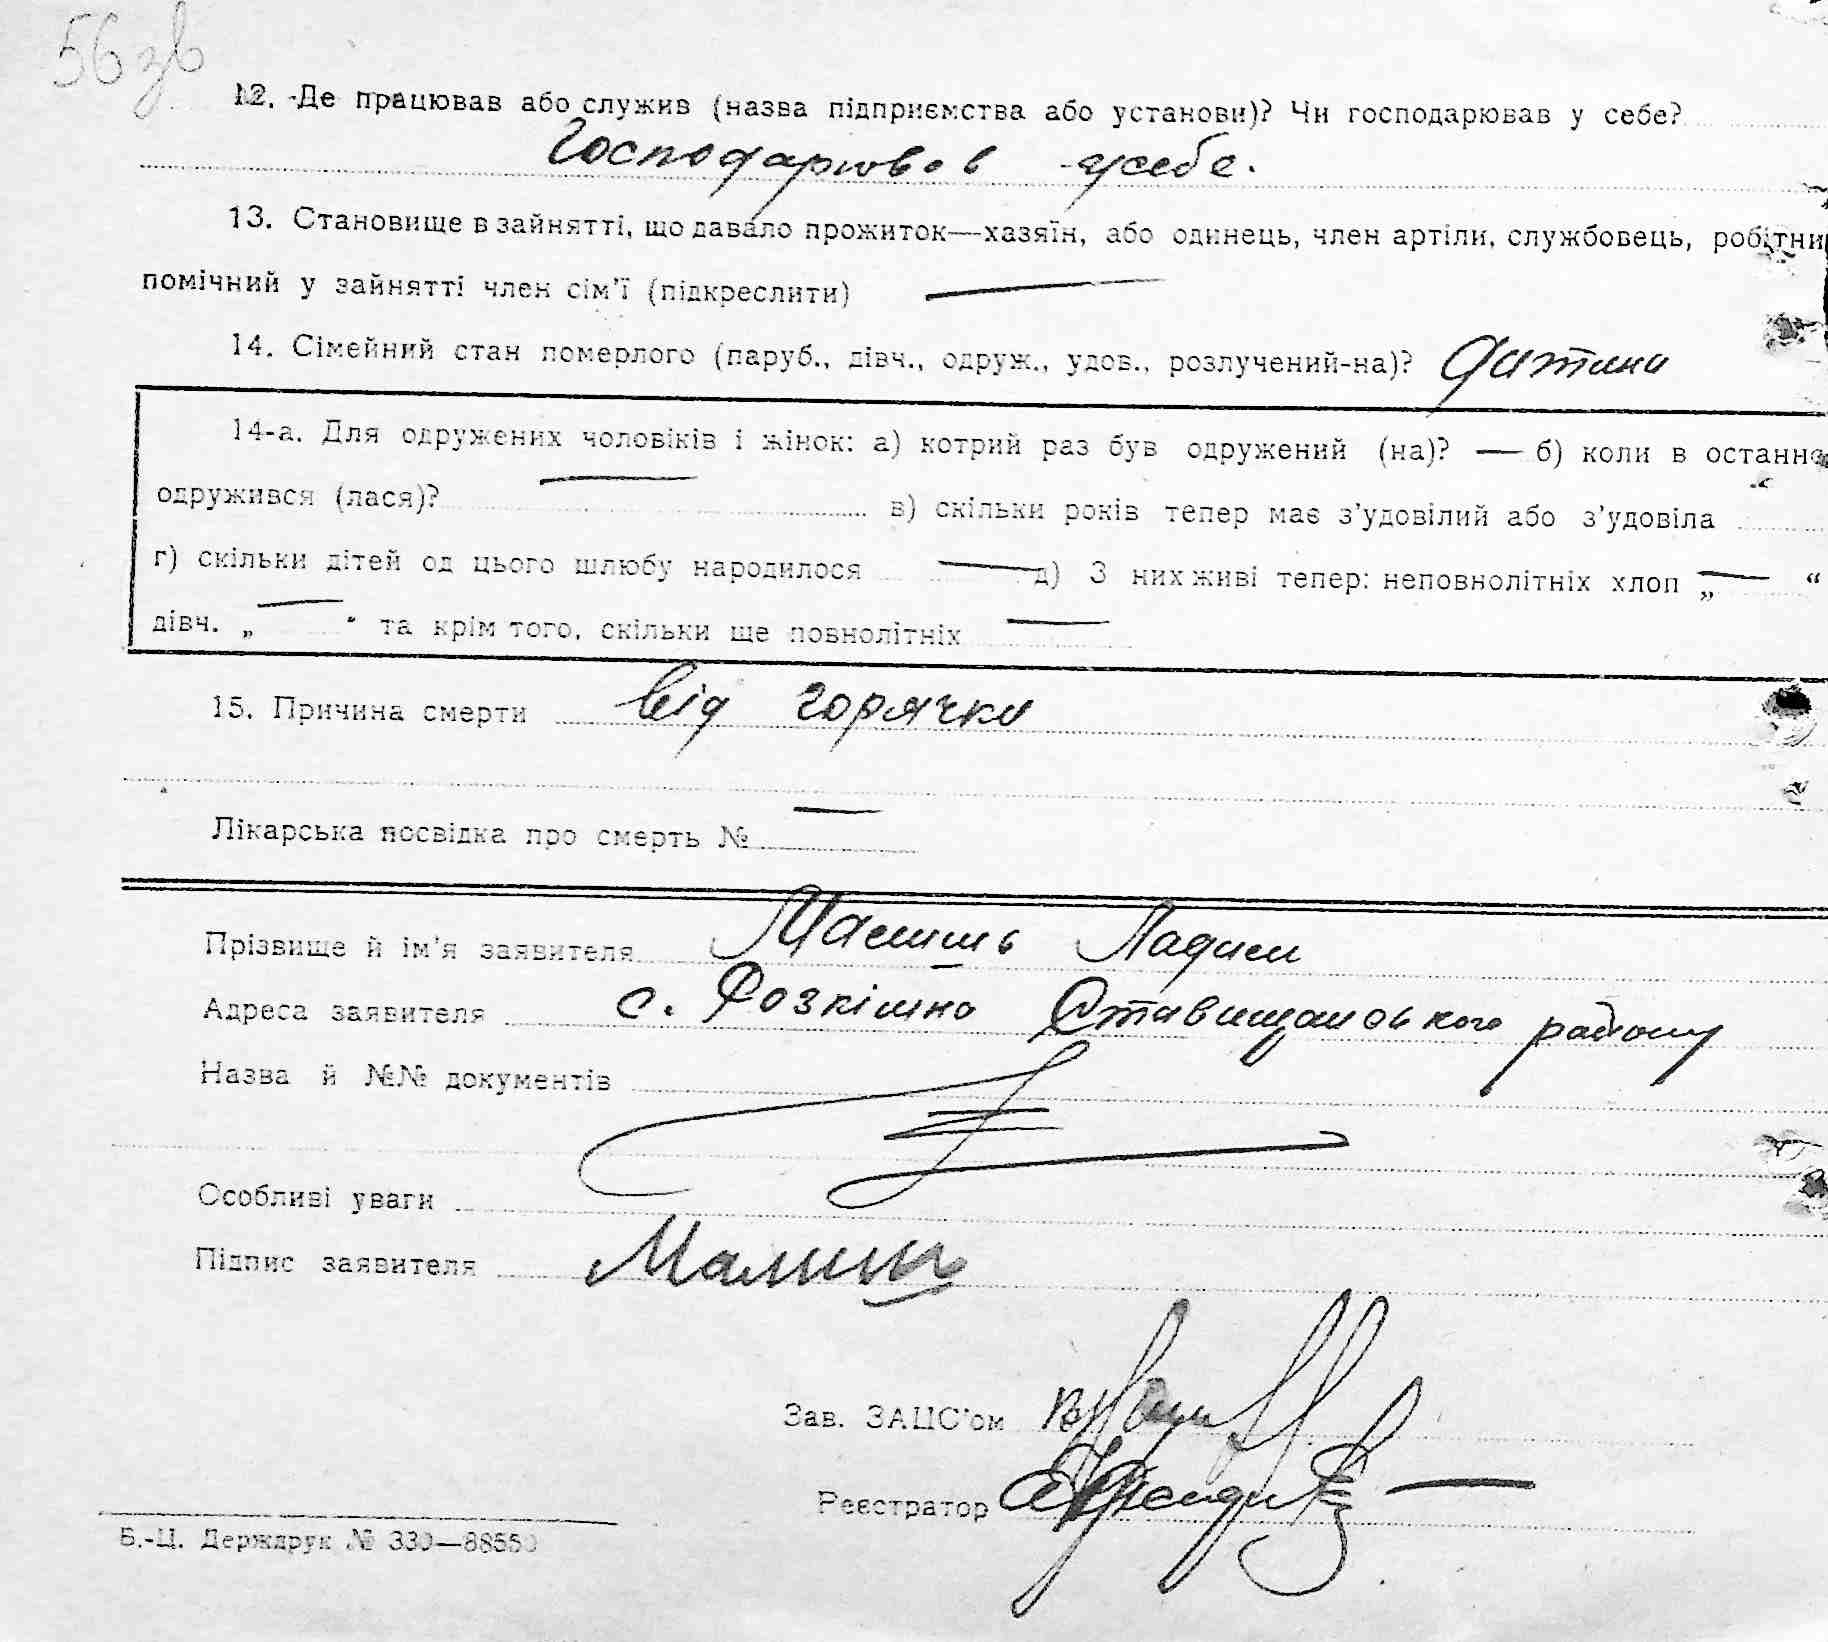 56 зв
12. Де працював або служив (назва підприємства або установи)? Чи господарював у себе?
Господарював у себе.
13. Становище в зайнятті, що давало прожиток—хазяїн, або одинець, член артіли, службовець, робітни
помічний у зайнятті член сім'ї (підкреслити) —
14. Сімейний стан померлого (паруб., дівч., одруж., удов., розлучений-на)? дитина
14-а. Для одружених чоловіків і жінок: а) котрий раз був одружений (на)? — б) коли в останнє
одружився (лася)? — в) скільки років тепер має з'удовілий або з'удовіла
г) скільки дітей од цього шлюбу народилося — д) З них живі тепер: неповнолітніх хлоп „ — “
дівч. „ — " та крім того, скільки ще повнолітніх —
15. Причина смерти від горячки
Лікарська посвідка про смерть № —
Прізвище й ім'я заявителя
Адреса заявителя с. Розкішна Ставищанського району
Назва й №№ документів
Особливі уваги
Підпис заявителя
Зав. ЗАЦС'ом
Реєстратор
Б.-Ц. Держдрук № 330—88550